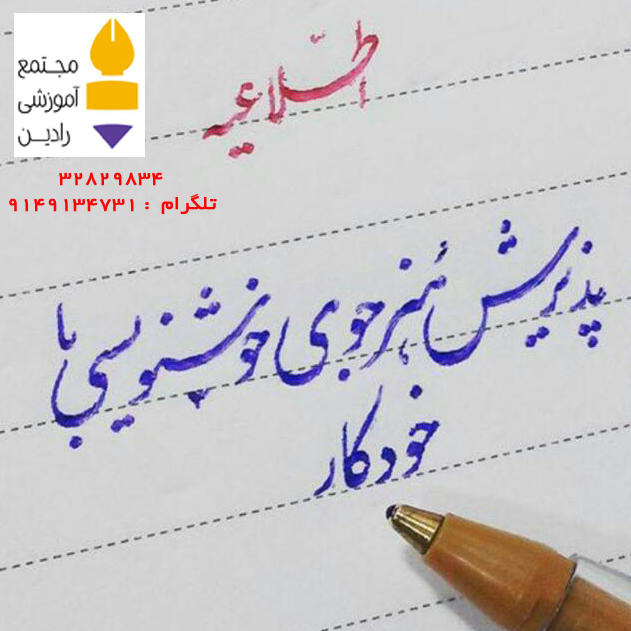 مجتمع
آموزشی
رادین
۳۲۸۲۹۸۳۴
تلگرام : ۹۱۴۹۱۳۴۷۳۱
اطّلاعیه
پذیرش هُنرجوی خوشنویسی با
خودکار